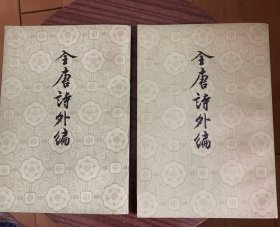 全唐詩外編
全唐詩外編